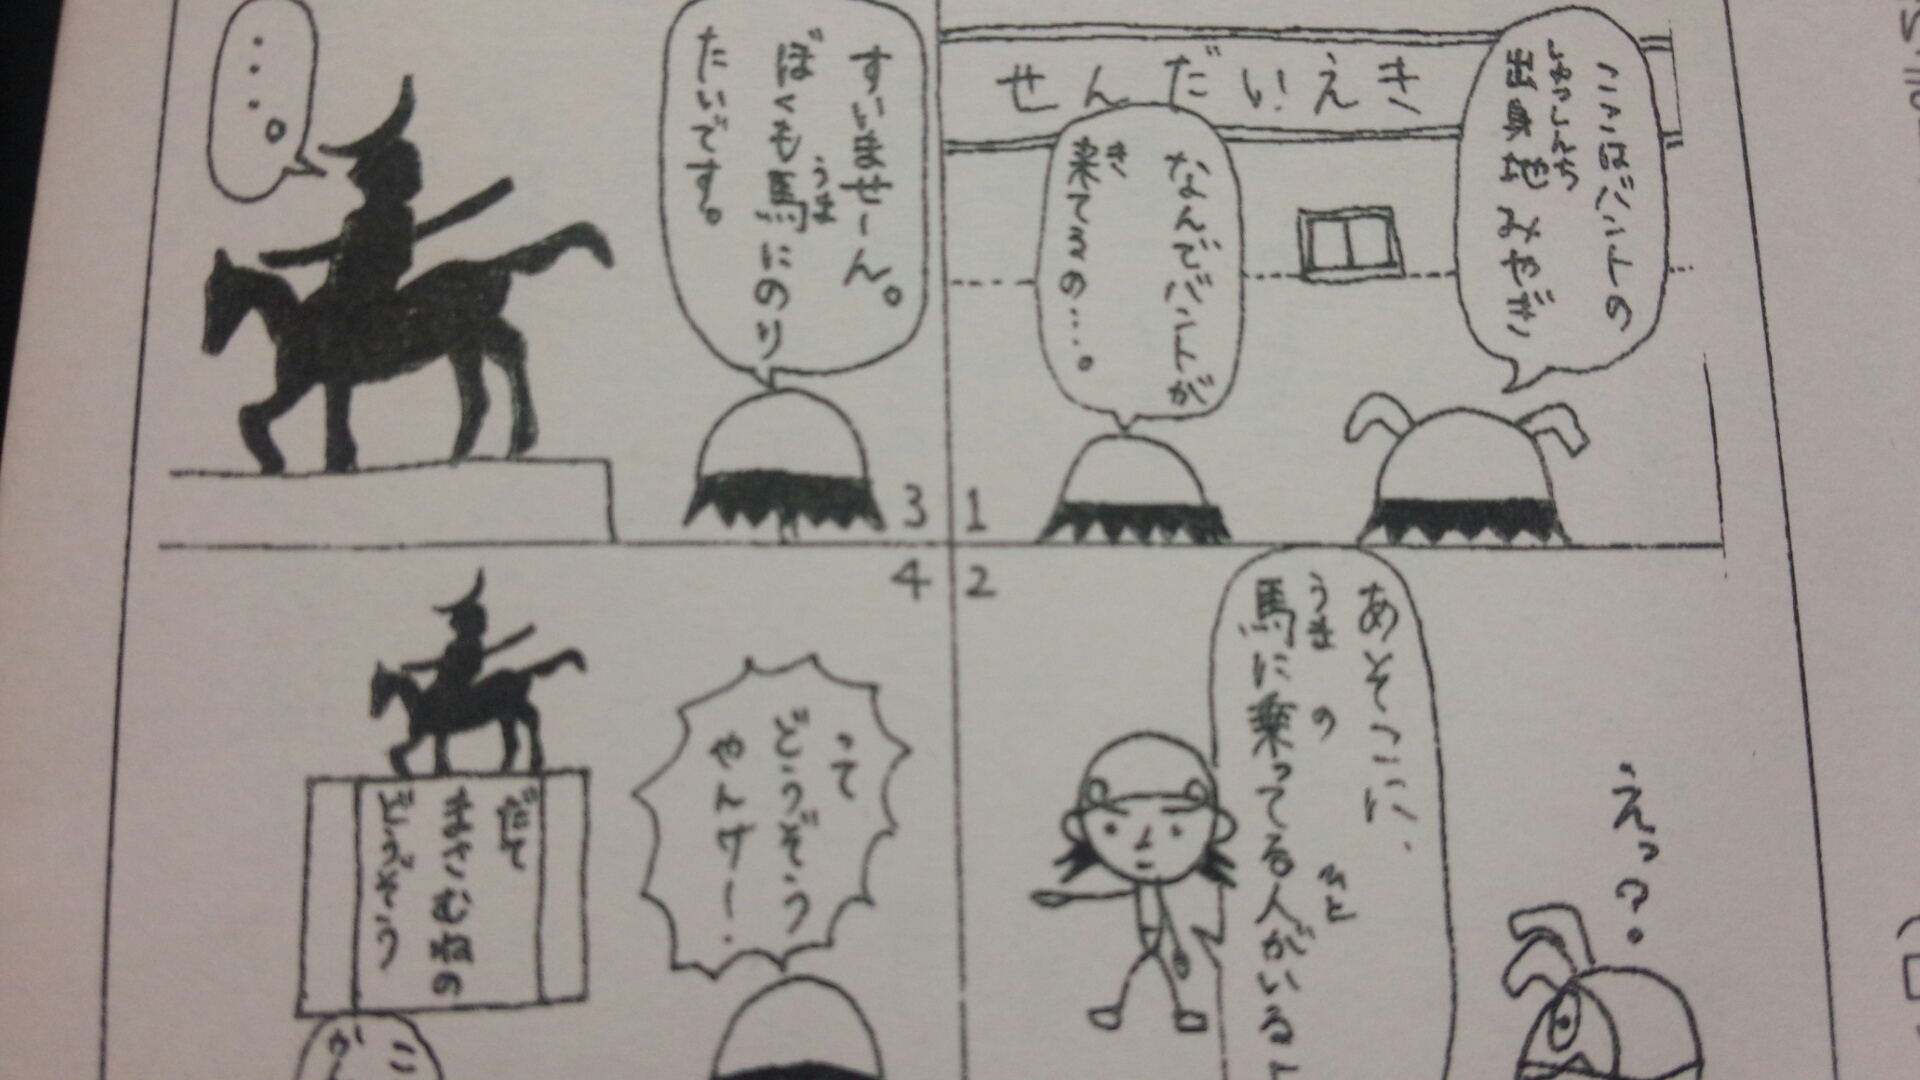 せんだいえき
ここはバートの
しゅっしんち
出身地みやぎ
なんでバートが
き
来てるの…。
1
2
えっ?
あそこに、
うま の ひと
馬に乗ってる人がいる
3
すいませーん。
うま
ぼくも馬にのり
たいです。
・・・。
4
って
どうぞう
やんけー!
だて
まさむねの
どうぞう